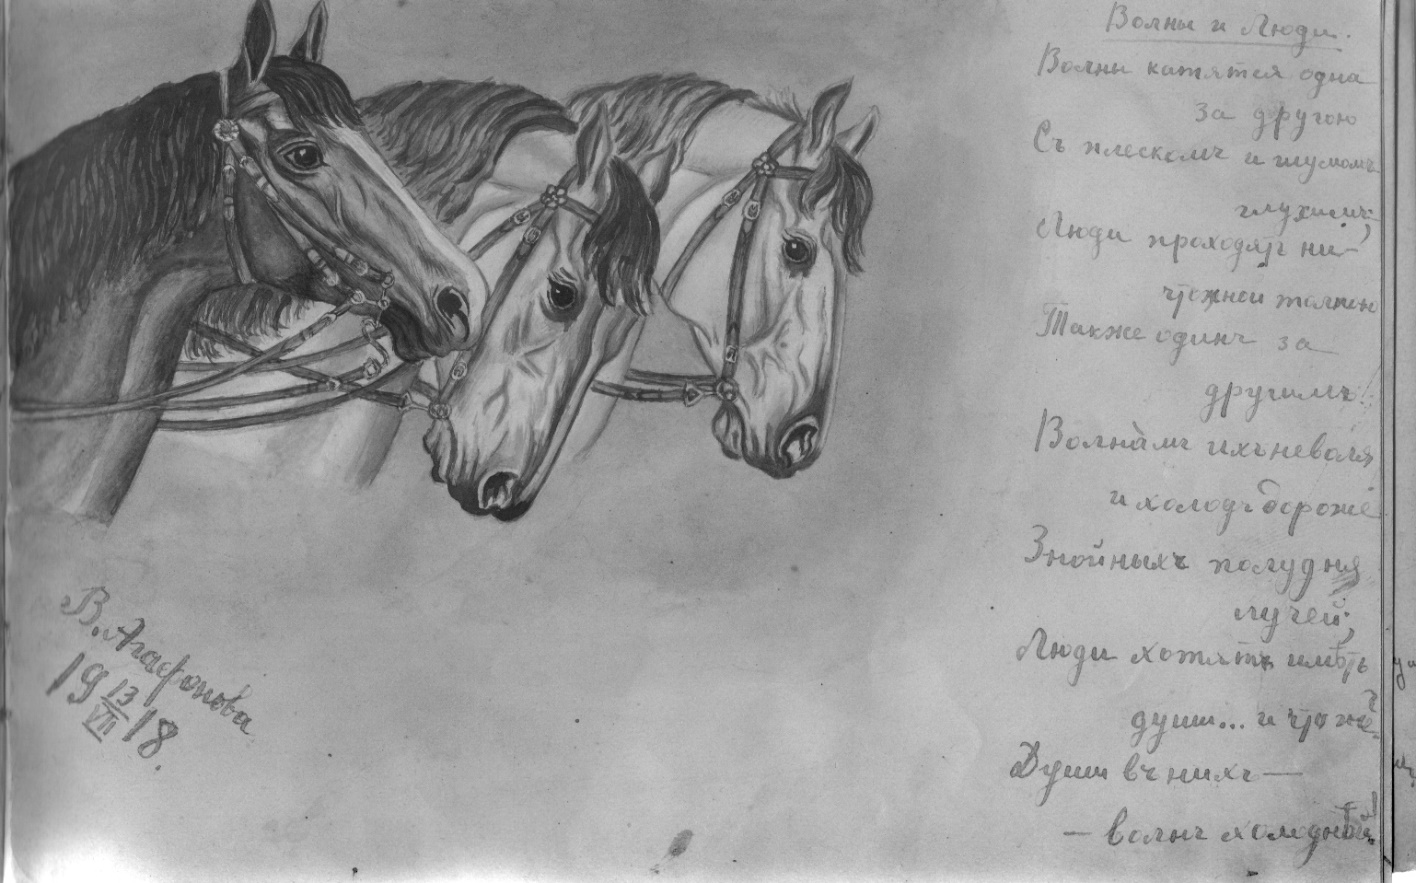 Волны и Люди.
Волны катятся одна
за другою
Съ плескомъ и шумомъ
глухимъ;
Люди проходятъ ни-
чтожной толпою
Также одинъ за
другимъ.
Волнамъ ихъ неволя
и холодъ дороже
Знойныхъ полудня
лучей;
Люди хотятъ имѣть
души... и что же?
Души въ нихъ —
— волнъ холоднѣй!
В. Агафонова
19 13/VII 18.